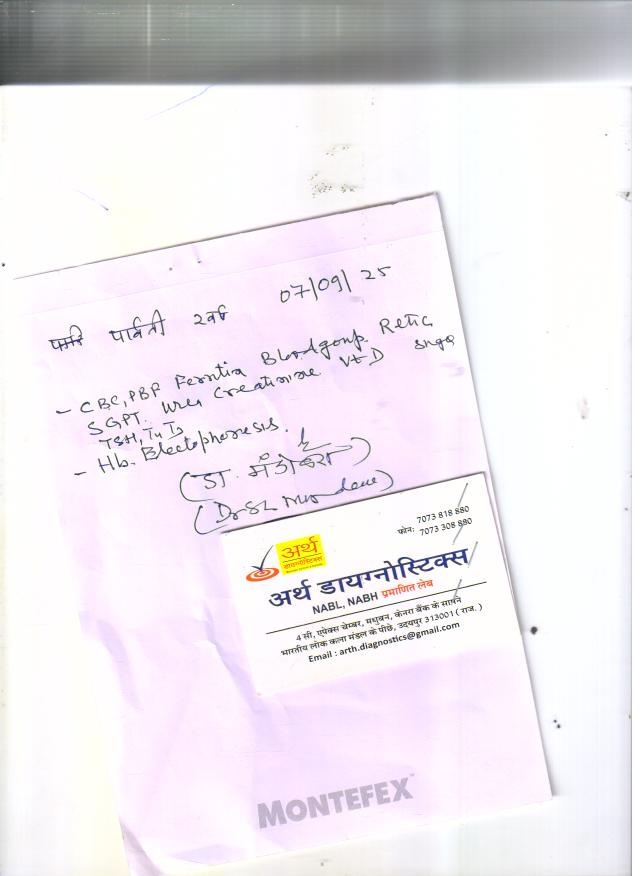 07/09/25
पार्वती 2वर्ष
- CBC, PBF Ferritin Blood group Retic
SGPT. Urea Creatinine Vit D sugar
TSH, T4 T3
- Hb. Electophoresis.
(डा.
(Dr SL
फोन: 7073 818 880
7073 308 880
अर्थ
डायग्नोस्टिक्स
अर्थ डायग्नोस्टिक्स
NABL, NABH प्रमाणित लेब
4 सी, एपेक्स चेम्बर, मधुबन, केनरा बैंक के सामने
भारतीय लोक कला मंडल के पीछे, उदयपुर 313001 ( राज. )
Email : arth.diagnostics@gmail.com
MONTEFEX™